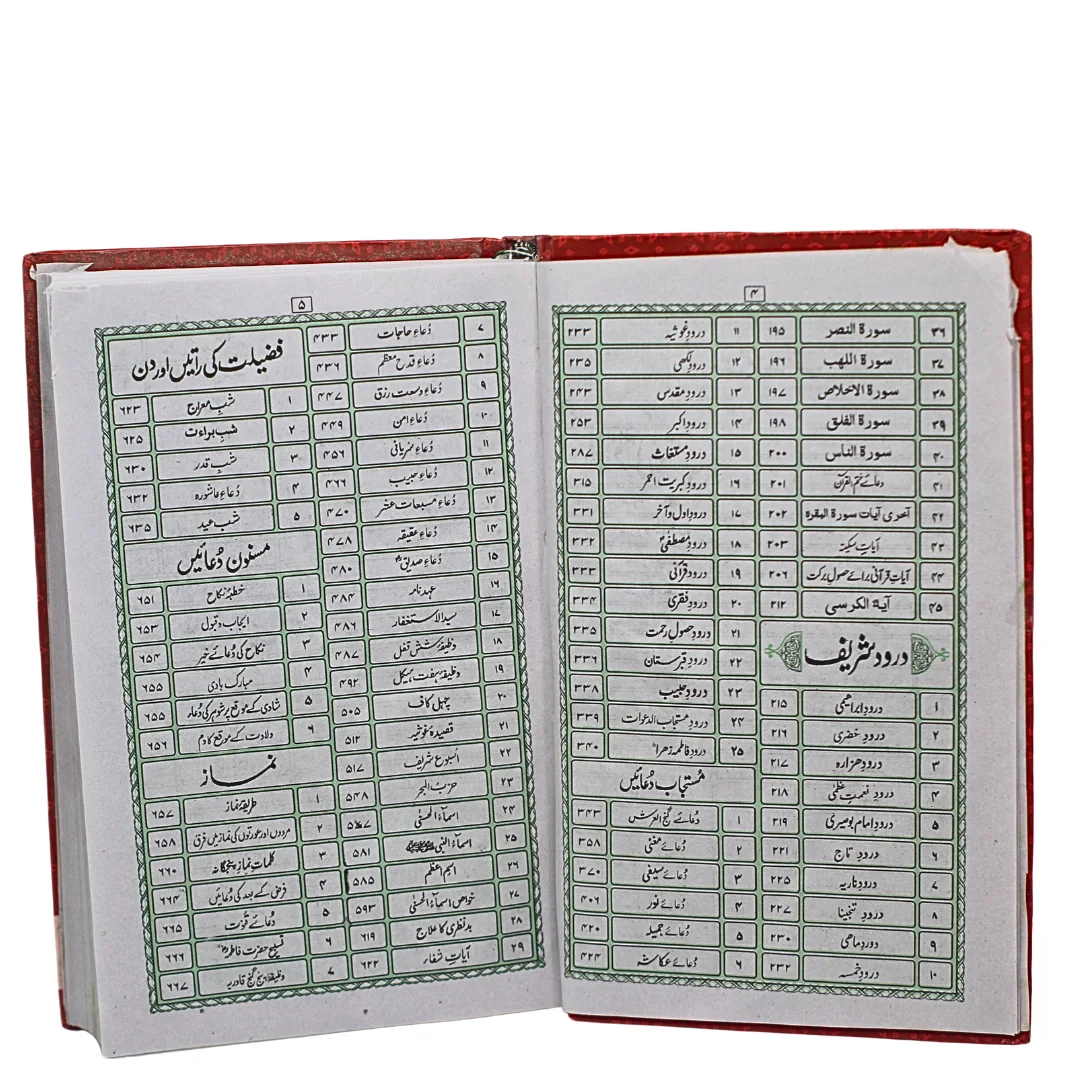 ۴
۳۶ سورة النصر ۱۹۵
۳۷ سورة اللهب ۱۹۶
۳۸ سورة الاخلاص ۱۹۷
۳۹ سورة الفلق ۱۹۸
۴۰ سورة الناس ۲۰۰
۴۱ دعائے ختم القرآن ۲۰۱
۴۲ آخری آیات سورة البقره ۲۰۲
۴۳ آیاتِ سکینہ ۲۰۳
۴۴ آیات قرآنی برائے حصول برکت ۲۰۶
۴۵ آیة الکرسی ۲۱۲
درود شریف
۱ درودِ ابراہیمی ۲۱۵
۲ درودِ خضری ۲۱۶
۳ درودِ ہزارہ ۲۱۷
۴ درودِ نعمتِ عظمٰی ۲۱۸
۵ درودِ امام بوصیری ۲۱۹
۶ درودِ تاج ۲۲۱
۷ درودِ ناریہ ۲۲۵
۸ درودِ تنجینا ۲۲۷
۹ درودِ ماھی ۲۳۰
۱۰ درودِ خمسہ ۲۳۲
۱۱ درودِ غوثیہ ۲۳۳
۱۲ درودِ لکھی ۲۳۵
۱۳ درودِ مقدس ۲۴۳
۱۴ درودِ اکبر ۲۵۳
۱۵ درودِ مستغاث ۲۸۷
۱۶ درودِ کبریت احمر ۳۱۵
۱۷ درودِ اول و آخر ۳۳۱
۱۸ درودِ مصطفیٰ ۳۳۲
۱۹ درودِ قرآنی ۳۳۳
۲۰ درودِ فقری ۳۳۴
۲۱ درودِ حصولِ رحمت ۳۳۵
۲۲ درودِ قبرستان ۳۳۶
۲۳ درودِ حبیب ۳۳۸
۲۴ درودِ مستجاب الدعوات ۳۳۹
۲۵ درودِ فاطمہ زھرا ۳۴۰
مُستجاب دُعائیں
۱ دُعائے گنج العرش ۳۴۳
۲ دُعائے مغنی ۳۵۸
۳ دُعائے سیفی ۳۷۰
۴ دُعائے نُور ۴۰۶
۵ دُعائے جمیلہ ۴۲۰
۶ دُعائے عکاشہ ۴۲۴
۵
۷ دُعاءِ حاجات ۴۳۳
۸ دُعاءِ قدح معظم ۴۳۶
۹ دُعاءِ وسعت رزق ۴۴۷
۱۰ دُعاءِ امن ۴۴۹
۱۱ دُعاءِ سُریانی ۴۵۶
۱۲ دُعاءِ حبیب ۴۶۶
۱۳ دُعاءِ مسبعات عشر ۴۷۰
۱۴ دُعاءِ عقیقہ ۴۷۸
۱۵ دُعاءِ صدیق ۴۸۰
۱۶ عہد نامہ ۴۸۴
۱۷ سید الاستغفار ۴۸۶
۱۸ وظیفہ شش قفل ۴۸۷
۱۹ وظیفہ ہفت ہیکل ۴۹۲
۲۰ چہل کاف ۵۰۵
۲۱ قصیدۂ غوثیہ ۵۱۲
۲۲ اُسبوع شریف ۵۱۷
۲۳ حزبُ البحر ۵۴۸
۲۴ اسمآءُ الحسنٰی ۵۶۷
۲۵ اسمآءُ النبی ﷺ ۵۸۱
۲۶ اسمِ اعظم ۵۸۵
۲۷ خواص اسمآءُ الحسنٰی ۵۹۳
۲۸ بدنظری کا علاج ۶۱۹
۲۹ آیاتِ شفاء ۶۲۲
فضیلت کی راتیں اور دن
۱ شبِ معراج ۶۲۳
۲ شبِ براءت ۶۲۵
۳ شبِ قدر ۶۳۰
۴ دُعاءِ عاشورہ ۶۳۲
۵ شبِ عید ۶۳۵
مسنون دُعائیں
۱ خطبۂ نکاح ۶۵۱
۲ ایجاب و قبول ۶۵۳
۳ نکاح کی دُعائے خیر ۶۵۴
۴ مبارک بادی ۶۵۵
۵ شادی کے موقع پر شوہر کی دُعاء ۶۵۵
۶ ولادت کے موقع کا دم ۶۵۶
نماز
۱ طریقۂ نماز ۶۵۷
۲ مردوں اور عورتوں کی نماز میں فرق ۶۵۸
۳ کلماتِ نمازِ پنجگانہ ۶۶۰
۴ فرض کے بعد کی دُعائیں ۶۶۴
۵ دُعائے قنوت ۶۶۵
۶ تسبیح حضرت فاطمہ ۶۶۶
۷ وظیفہ پنج گنج قادریہ ۶۶۷